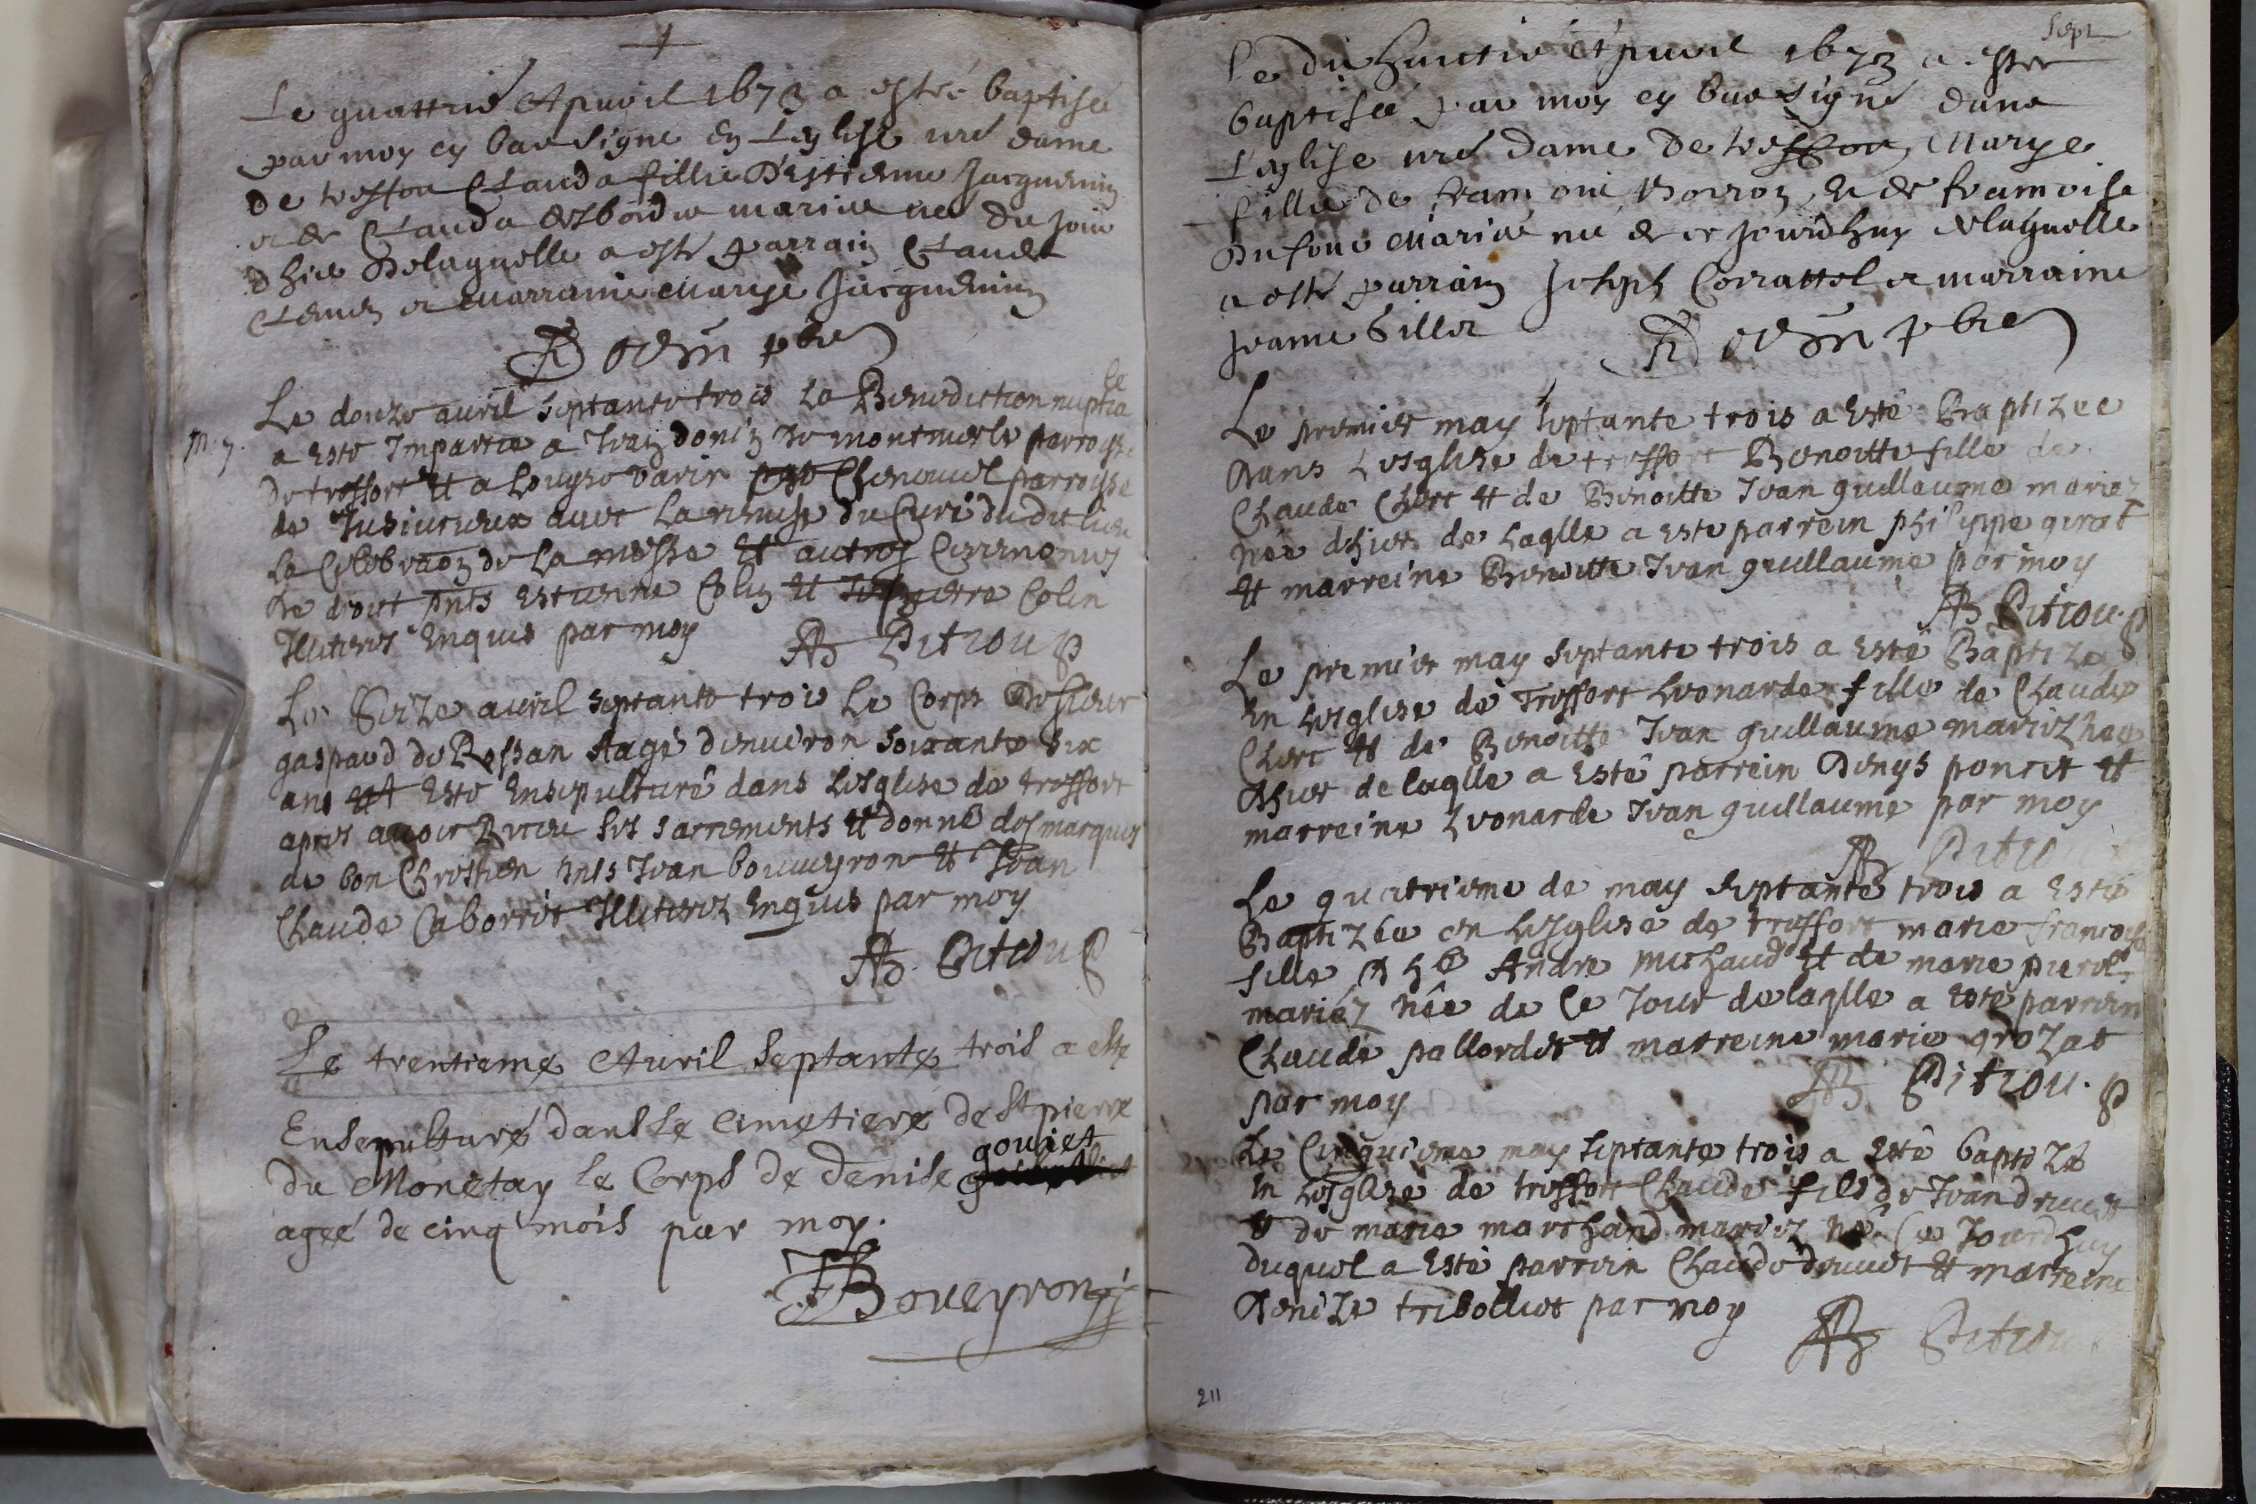 Le quattrie Apuvril 1673 a esté baptisée
par moy cy bas signe en Leglise nré dame
de tresfou Clauda fillie D'estienne Jacquemin
et de Clauda desbordie mariee nee du jour
d'hier Delaquelle a esté parrain Claude
Clemen et Marraine Marye Jacquemin
pbre
Le douze avril septante trois La Benediction nuptialle
a esté Impartie a Jean donin de montmerle parroisse
de treffort et a Louyse Varin Chenavel parroisse
de Jusurieux avec La remise du Curé dudit lieu
La Celebraõn de La messe et autres Ceremonies
de droit pnts estienne Colin et Colin
Illiterés Enquis par moy AB Pitiou p
M. 7.
Le Seize avril septante trois Le Corps De sieur
gaspard de Rossan Aagé denuiron soixante six
ans Esté Ensepulturé dans Lesglise de treffort
apres auoir Receu ses sacrements et donné des marques
de bon Chrestien pnts Jean bouueyron et Jean
Claude Caborret Illiterez Enquis par moy
AB Pitiou p
Le trentieme Auril septante trois a esté
Ensepulturé dans Le Cimetiere de St pierre
du Monetay le Corps de denise gouiet
ageé de cinq mois par moy.
JBoueyron
Sept
Le dix huictie Apuril 1673 a ester
baptisée par moy cy bas signé dans
L'eglise nré dame De tresfou Marye
fillie de francois Borron et de francoise
Dufour Mariée née de ce jourdhuy Delaquelle
a esté parrain Joseph Corrattel et marraine
Jeanne Gillet
pbre
Le premier may septante trois a Esté Baptizée
dans Lesglise de treffort Benoitte fille de
Claude Clerc et de Benoitte Jean guillaume mariez
née dhier de laqlle a este parrein philippe girat
et marreine Benoitte Jean guillaume par moy
AB Pitiou. p
Le premier may septante trois a Esté Baptizée
En Lesglise de Treffort Leonarde fille de Claude
Clerc et de Benoitte Jean guillaume mariez née
dhier de laqlle a Esté parrein Denys poncet et
marreine Leonarde Jean guillaume par moy
AB Pitiou
Le quatrieme de may septante trois a Esté
Baptizée en Lesglise de treffort marie francoise
fille d h^e Andre michaud et de marie
mariéz née de Ce Jour de laqlle a esté parrein
Claude pallordet et marreine marie grozat
par moy AB Pitiou. p
Le Cinquieme may septante trois a Esté baptizé
En Lesglise de treffort Claude fils de Jean druet
et de marie marchand mariez né Ce Jourdhuy
duquel a Esté parrein Claude druet et marreine
Denize tribollet par moy AB Pitiou
211